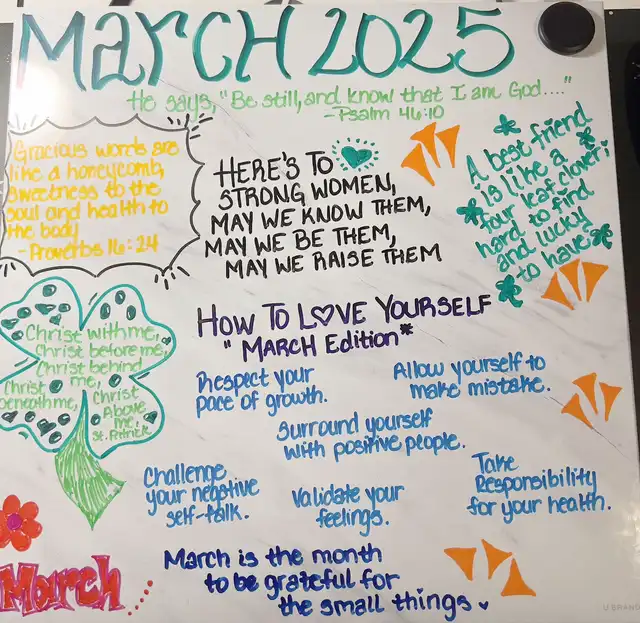 MArCH 2025
He says, "Be still, and know that I am God...."
-Psalm 46:10
Gracious words are
like a honeycomb,
sweetness to the
soul and health to
the body
- Proverbs 16:24
HERE'S TO
STRONG WOMEN,
MAY WE KNOW THEM,
MAY WE BE THEM,
MAY WE RAISE THEM
A best friend
is like a
four leaf clover;
hard to find
and lucky
to have
Christ with me,
Christ before me,
Christ behind
me,
Christ
beneath me,
Christ
Above
me,
St. Patrick
HOW TO LOVE YOURSELF
"MARCH Edition"
Respect your
pace of growth.
Allow yourself to
make mistake.
Surround yourself
with positive people.
Challenge
your negative
self-talk.
Validate your
feelings.
Take
Responsibility
for your health.
March
March is the month
to be grateful for
the small things
U BRANDS